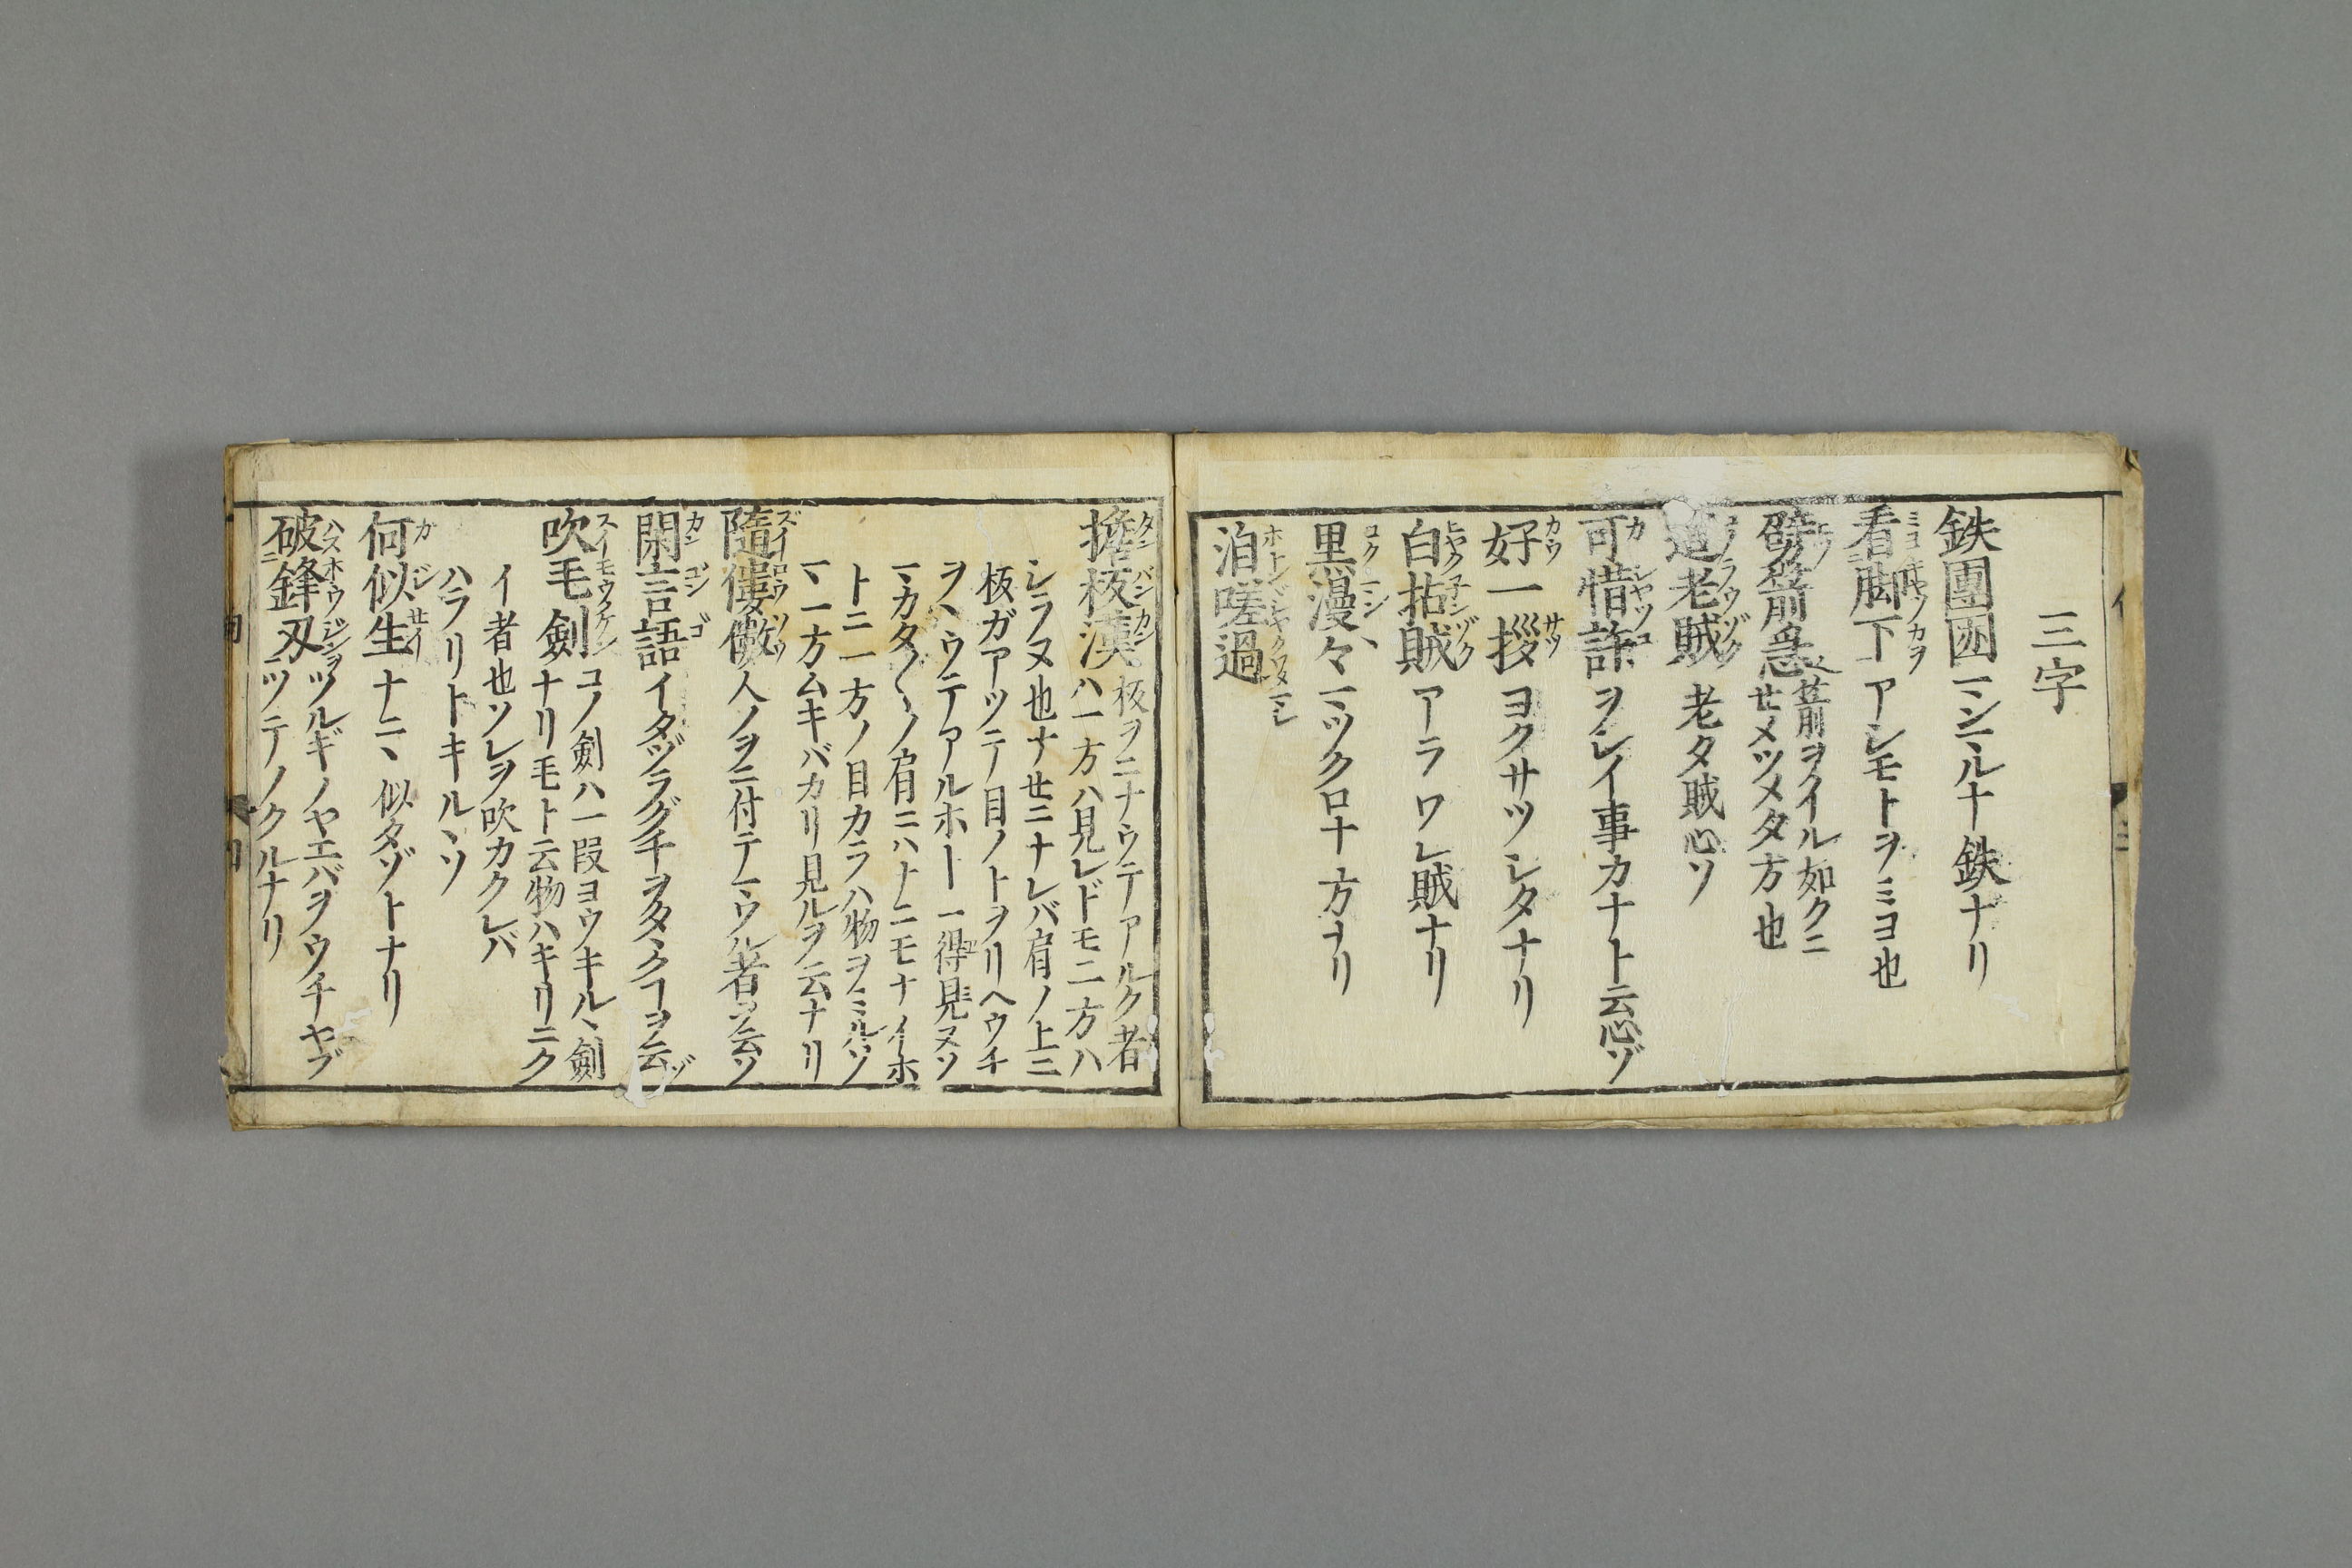 三字
鉄團圝マンマルナ鉄ナリ
看脚下アシモトヲミヨ也
劈箭急箭ヲイル如クニ
せメツメタ方也
這老賊老タ賊心ソ
可惜許ヲシイ事カナト云心ゾ
好一拶ヨクサツシタナリ
白拈賊アラワレ賊ナリ
黒漫々マツクロナ方ナリ
洎嗟過
擔板漢板ヲニナウテアルク者
ハ一方ハ見レドモ二方ハ
シラヌ也ナせニナレバ肩ノ上ニ
板ガアツテ目ノトヲリヘウチ
ヲヽウテアルホー一得見ヌソ
マカタ〱ノ肩ニハナニモナイホ
トニ一方ノ目カラハ物ヲミルソ
マ一方ムキバカリ見ルヲ云ナリ
隨僂儌人ノヲニ付テマウル者ヲ云ソ
閑言語イタヅラグチヲタヽクヿヲ云ゾ
吹毛劍コノ劍ハ一段ヨウキルヽ劍
ナリ毛ト云物ハキリニク
イ者也ソレヲ吹カクレバ
ハラリトキルヽソ
何似生ナニヽ似タゾトナリ
破鋒刃ツルギノヤエバヲウチヤブ
ツテノクルナリ